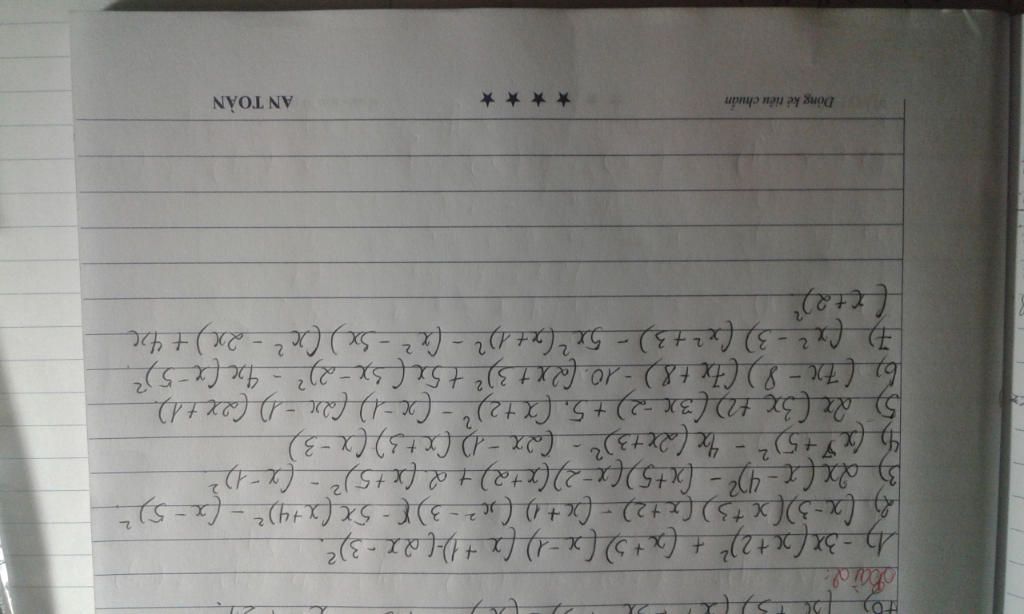 Bài 2:
1) -3x(x+2)² + (x+3)(x-1)(x+1)-(2x-3)².
2) (x-3)(x+3)(x+2) - (x+1)(x²-3) - 5x(x+4)² - (x-5)²
3) 2x(x-4)² - (x+5)(x-2)(x+2) + 2(x+5)² - (x-1)²
4) (x+5)² - 4x(2x+3)² - (2x-1)(x+3)(x-3)
5) 2x(3x+2)(3x-2) + 5.(x+2)² - (x-1)(2x-1)(2x+1).
6) (7x-8)(7x+8) - 10(2x+3)² + 5x(3x-2)² - 4x(x-5)².
7) (x²-3)(x²+3) - 5x²(x+1)² - (x²-3x)(x²-2x) + 4x
(x+2)²
Dòng kẻ tiêu chuẩn ★ ★ ★ ★ AN TOÀN